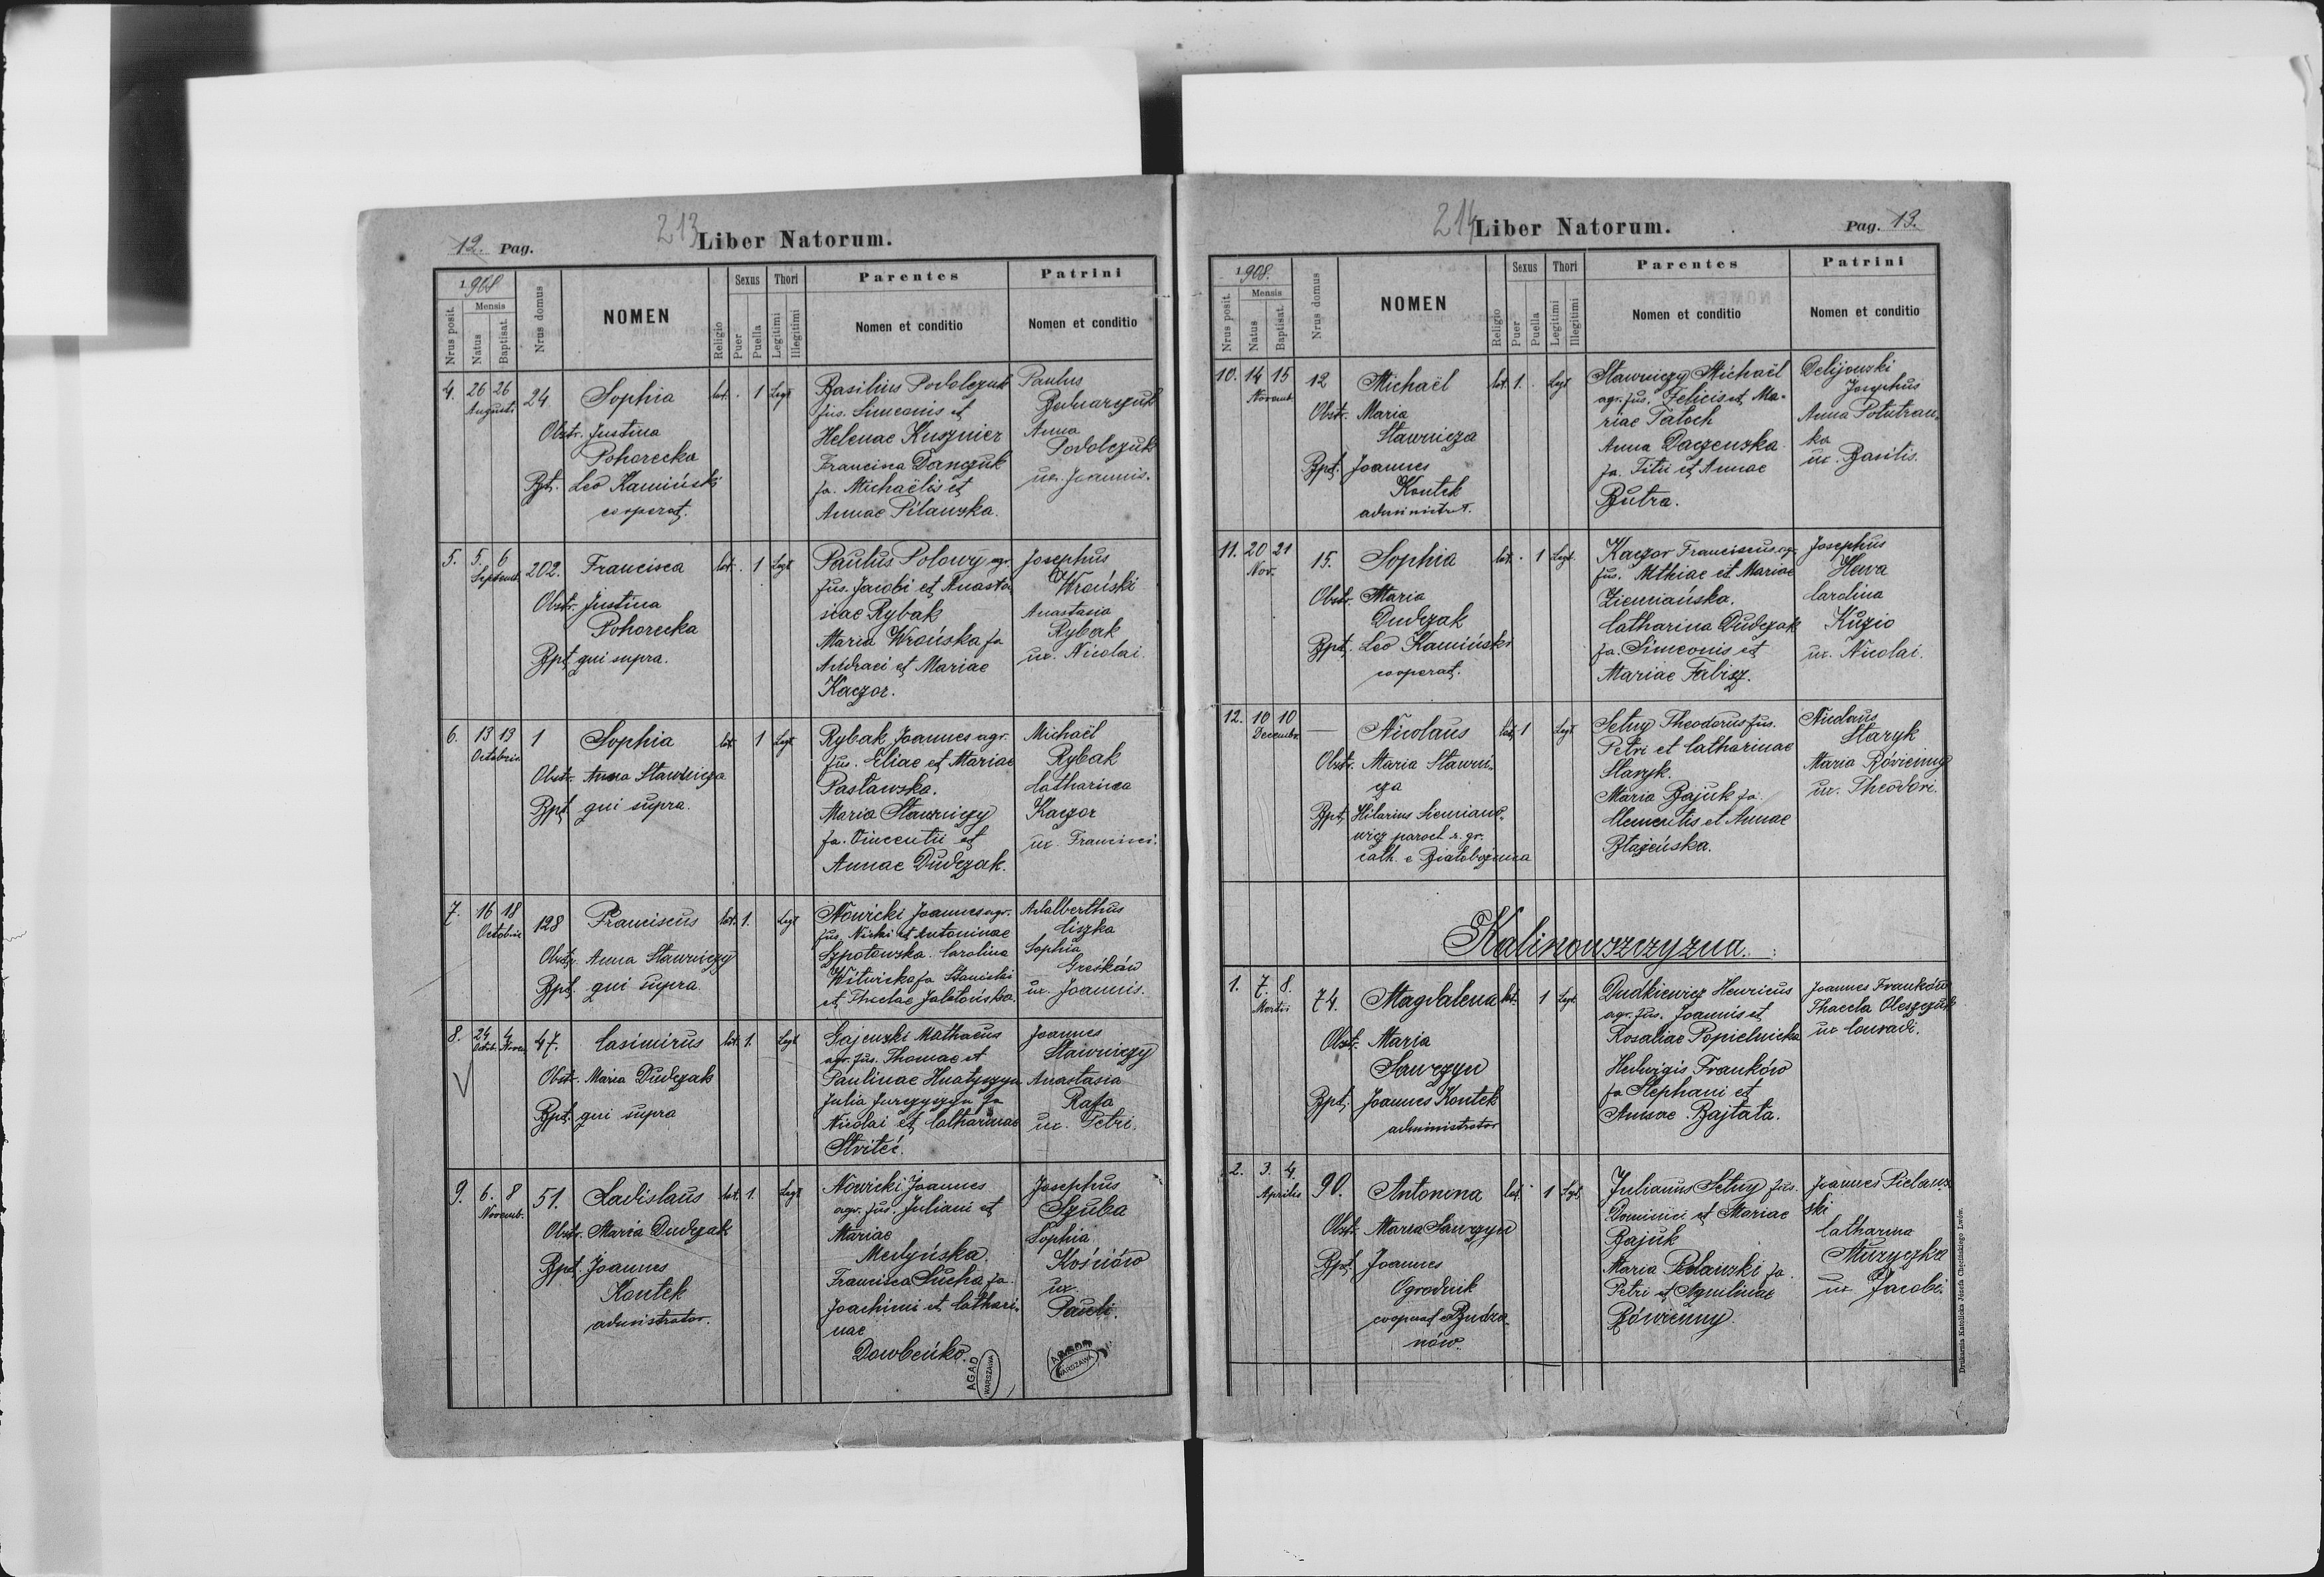 12. Pag.
213
Liber Natorum.
1908
Nrus posit.
Mensis
Natus
Baptisat.
Nrus domus
NOMEN
Religio
Sexus
Puer
Puella
Thori
Legitimi
Illegitimi
Parentes
Nomen et conditio
Patrini
Nomen et conditio
4. 26 26 Augusti 24 Sophia lat. 1 Legt
Obstr. Justina
Pohorecka
Bpt. Leo Kamiński
cooperat.
Basilius Podolczuk
fus. Simeonis et
Helenae Kusznier
Francisca Domczuk
fa. Michaëlis et
Annae Pilawska.
Paulus
Anna
Podolczuk
ux. Joannis.
5. 5. 6 Septemb. 202. Francisca lat. 1 Legt
Obstr. Justina
Pohorecka
Bpt. qui supra.
Paulus Polowy agr.
fus. Jacobi et Anasta
siae Rybak
Maria Wrońska fa
Andraei et Mariae
Kaczor.
Josephus
Wroński
Anastasia
Rybak
ux. Nicolai.
6. 13 13 Octobris 1 Sophia lat. 1 Legt.
Obstr. Anna Stawnicza
Bpt. qui supra.
Rybak Joannes agr.
fus. Eliae et Mariae
Pasławska.
Maria Stawniczy
fa. Vincentii et
Annae Dudczak.
Michaël
Rybak
Catharina
Kaczor
ux. Francisci.
7. 16 18 Octobris 128 Franciscus lat. 1. Legt
Obstr. Anna Stawniczy
Bpt. qui supra
Nowicki Joannes agr.
et Antoninae
Szpotowska. Carolina
Witwicka fa Stanislai
et Theclae Jabłońska.
Adalberthus
Liszka
Sophia
Greśków
ux. Joannis.
8. 24 Octob. 4 Nove. 47. Casimirus lat. 1. Legt
Obstr. Maria Dudczak
Bpt. qui supra
Gajewski Mathaeus
agr. fus. Thomae et
Paulinae Hnatyszyn
Julia Jurczyszyn fa
Nicolai et Catharinae
Joannes
Stawniczy
Anastasia
Rafa
ux. Petri.
9. 6. 8 Novemb. 51. Ladislaus lat. 1. Legt
Obstr. Maria Dudczak
Bpt. Joannes
Kontek
administrator.
Nowicki Joannes
agr. fus. Juliani et
Mariae
Medyńska.
Francisca Sucha fa.
Joachimi et Cathari-
nae
Dowbeńko.
Josephus
Szuba
Sophia
Kośćiów
ux.
Pauli.
AGAD
WARSZAWA
WARSZAWA
214
Liber Natorum.
Pag. 13.
1908.
Nrus posit.
Mensis
Natus
Baptisat.
Nrus domus
NOMEN
Religio
Sexus
Puer
Puella
Thori
Legitimi
Illegitimi
Parentes
Nomen et conditio
Patrini
Nomen et conditio
10. 14 15 Novemb. 12 Michaël lat. 1. Legt
Obstr. Maria
Stawnicza
Bpt. Joannes
Kontek
administrat.
Stawniczy Michaël
agr. fus. Felicis et Ma-
riae Patoch
Anna Daczewska
fa. Titi et Annae
Butra.
Delijowski
Josephus
Anna Polutran-
ka
ux. Basilis.
11. 20 21 Nov. 15. Sophia lat. 1 Legt.
Obstr. Maria
Dudczak
Bpt. Leo Kamiński
cooperat.
Kaczor Franciscus agr.
fus. Mthiae et Mariae
Ziemiańska.
Catharina Dudczak
fa. Simeonis et
Mariae Fabisz.
Josephus
Hewa
Carolina
Kuzio
ux. Nicolai.
12. 10 10 Decembr. — Nicolaus lat. 1 Legt.
Obstr. Maria Stawni-
cza
Bpt. Hilarius Siemiano-
wicz paroch r. gr.
cath. e Białobożnica
Setny Theodorus fus.
Petri et Catharinae
Staryk.
Maria Bajuk fa.
Clementis et Annae
Błażeńska.
Nicolaus
Staryk
Maria Rówienny
ux. Theodori.
Kalinowszczyzna.
1. 7. 8. Martii 74. Magdalena lat. 1 Legt.
Obstr. Maria
Sawczyn
Bpt. Joannes Kontek
administrator
Dudkiewicz Henricus
agr. fus. Joannis et
Rosaliae Popielnicka
Hedwigis Franków
fa Stephani et
Annae Bajtała.
Joannes Franków
Thaecla Oleszczuk
ux Conradi.
2. 3. 4. Aprilis 90. Antonina lat. 1 Legt.
Obstr. Maria Sawczyn
Bpt. Joannes
Ogrodnik
cooperat e Budza-
nów.
Julianus Setny fus.
Dominici et Mariae
Bajuk
Maria Pilawski fa.
Petri et Aquilinae
Rówienny
Joannes Pielaws-
ski
Catharina
Muzyczka
ux Jacobi.
Drukarnia Katolicka Józefa Chęcińskiego Lwów.